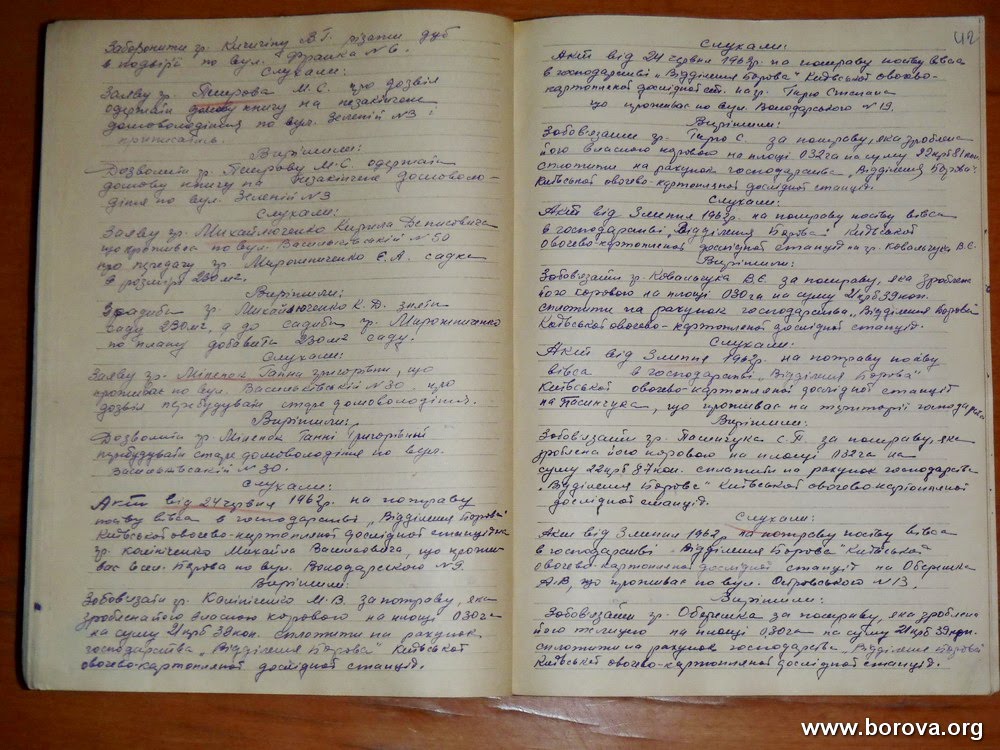 Заборонити гр. Кичигіну В.Г. різати дуб
в подвір'ї по вул. Франка N 6.
Слухали:
Заяву гр. М.С. про дозвіл
одержати домову книгу на незакінчене
домоволодіння по вул. Зеленій N 3
Вирішили:
Дозволити гр. М.С. одержати
домову книгу на незакінчене домоволо-
діння по вул. Зеленій N 3
Слухали:
Заяву гр. Михайлюченко Кирила Денисовича
що проживає по вул. Васильківській N 50
про передачу гр. Мирошниченко Є.А. садка
в розмірі 230 м².
Вирішили:
З садиби гр. Михайлюченко К.Д. зняти
саду 230 м², а до садиби гр. Мирошниченко
по плану добавити 230 м² саду.
Слухали:
Заяву гр. Міненок Ганни Григорівни, що
проживає по вул. Васильківській N 30 про
дозвіл перебудувати старе домоволодіння.
Вирішили:
Дозволити гр. Міненок Ганні Григорівні
перебудувати старе домоволодіння по вул.
Васильківській N 30.
Слухали:
Акт від 24 червня 1962р. на потраву
посіву вівса в господарстві „Відділення Борова"
Київської овочево-картопляної дослідної станції на
гр. Калініченко Михайла Васильовича, що прожи-
ває в сел. Борова по вул. Володарського N 9.
Вирішили:
Зобов'язати гр. Калініченко М.В. за потраву, яка
зроблена його власною коровою на площі 0.30 га
на суму 21 крб 39 коп. сплотити на рахунок
господарства „Відділення Борова" Київської
овочево-картопляної дослідної станції.
42
Слухали:
Акт від 24 червня 1962р. на потраву посіву вівса
в господарстві „Відділення Борова" Київської овочево-
картопляної дослідної ст. на гр. Тиро Степана
що проживає по вул. Володарського N 19.
Вирішили:
Зобов'язати гр. Тиро С. за потраву, яка зроблена
його власною коровою на площі 0.32 га на суму 22 крб 81 коп.
сплотити на рахунок господарства „Відділення Борова"
Київської овочево-картопляної дослідної станції.
Слухали:
Акт від 3 липня 1962р. на потраву посіву вівса
в господарстві „Відділення Борова" Київської
овочево-картопляної дослідної станції на гр. Ковальчука В.Є.
Вирішили:
Зобов'язати гр. Ковальчука В.Є. за потраву, яка зроблена
його коровою на площі 0.30 га на суму 21 крб 39 коп.
сплотити на рахунок господарства „Відділення Борова"
Київської овочево-картопляної дослідної станції.
Слухали:
Акт від 3 липня 1962р. на потраву посіву
вівса в господарстві „Відділення Борова"
Київської овочево-картопляної дослідної станції
на що проживає на території господарства
Вирішили:
Зобов'язати гр. С.П. за потраву, яка
зроблена його коровою на площі 0.32 га на
суму 22 крб 87 коп. сплотити на рахунок господарства
„Відділення Борова" Київської овочево-картопляної
дослідної станції.
Слухали:
Акт від 3 липня 1962р. на потраву посіву вівса
в господарстві „Відділення Борова" Київської
овочево-картопляної дослідної станції на Обережка
А.В, що проживає по вул. Островського N 13.
Вирішили:
Зобов'язати гр. Обережка за потраву, яка зроблена
його телицею на площі 0.30 га на суму 21 крб 39 коп.
сплотити на рахунок господарства „Відділення Борова"
Київської овочево-картопляної дослідної станції.
www.borova.org